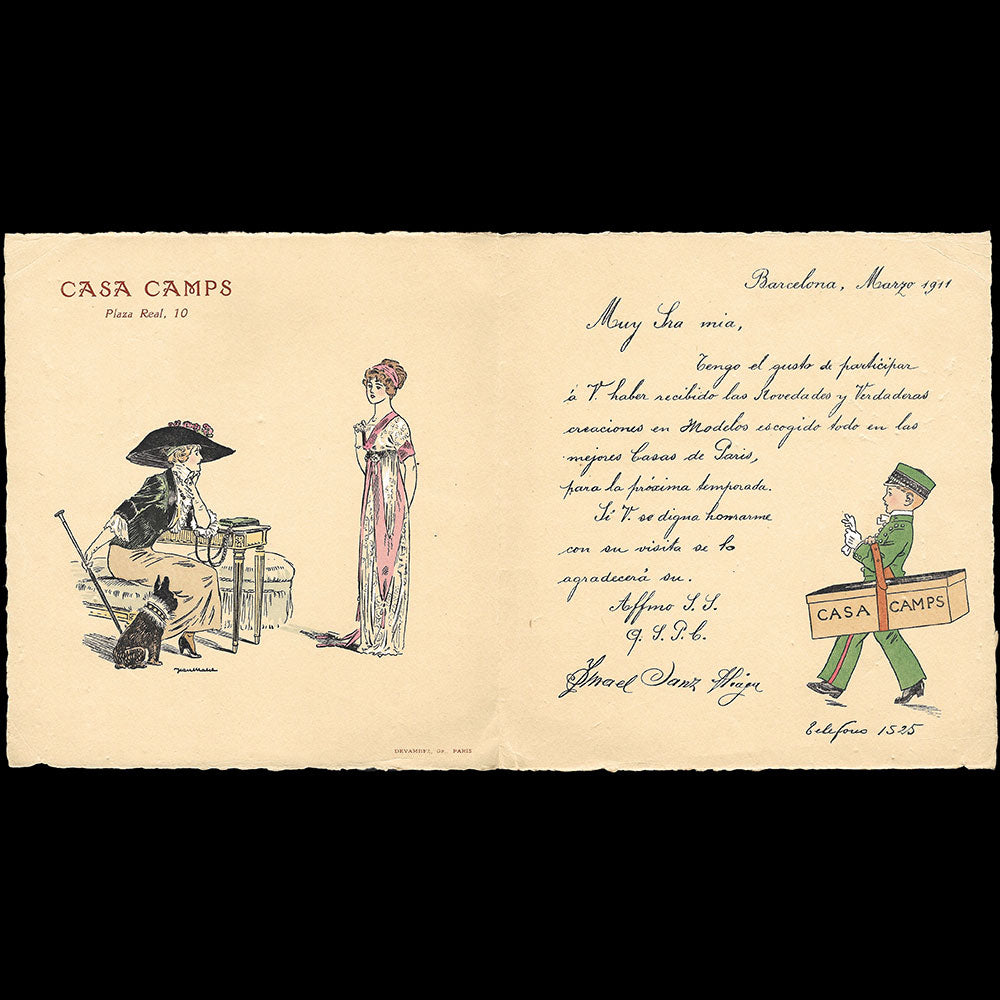 CASA CAMPS
Plaza Real, 10
DEVAMBEZ, Gr. PARIS
Barcelona, Marzo 1911
Muy Sra mia,
Tengo el gusto de participar
á V. haber recibido las Novedades y Verdaderas
creaciones en Modelos escogido todo en las
mejores Casas de Paris,
para la próxima temporada.
Si V. se digna honrarme
con su visita se lo
agradecerá su.
Affmo S. S.
q. S. P. B.
Ismael Sanz
CASA CAMPS
Telefono 1525